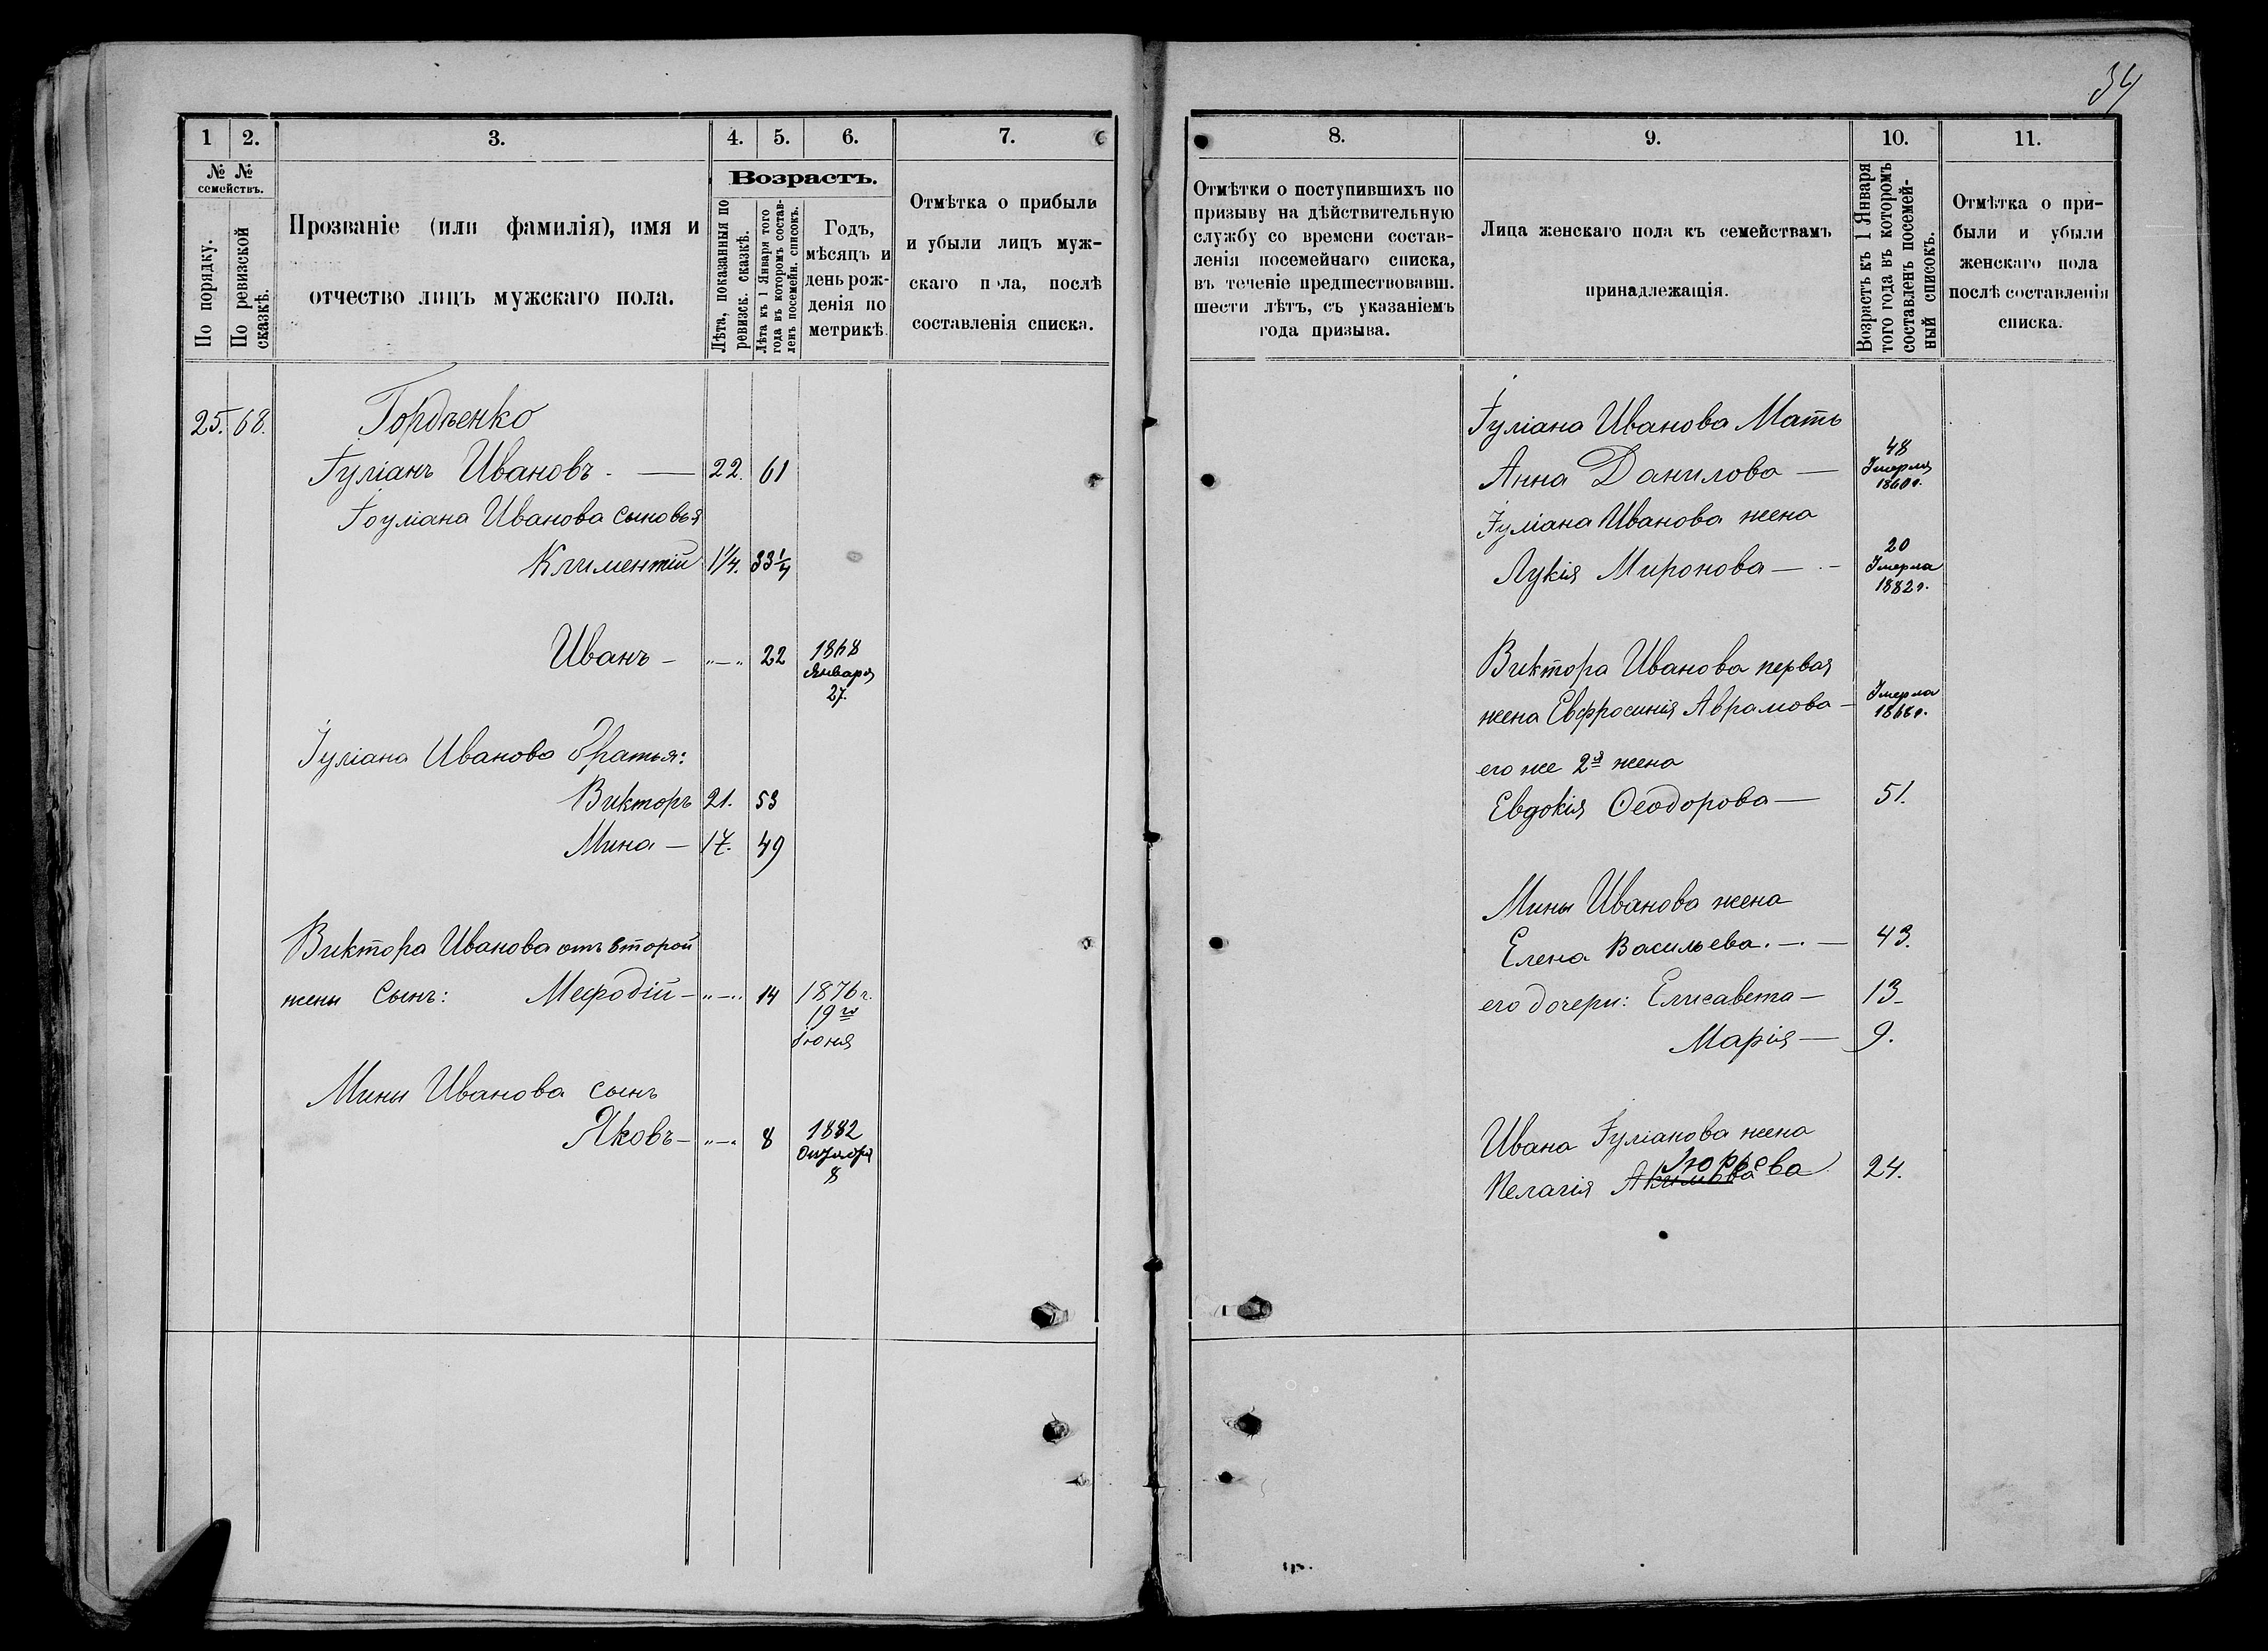 34
1 2. 3. 4. 5. 6. 7.
№ № семействъ.
По порядку.
По ревизской сказкѣ.
Прозваніе (или фамилія), имя и
отчество лицъ мужскаго пола.
Возрастъ.
Лѣта, показанныя по ревизск. сказкѣ.
Лѣта къ 1 Января того года въ которомъ составленъ посемейн. списокъ.
Годъ,
мѣсяцъ и
день рож-
денія по
метрикѣ
Отмѣтка о прибыли
и убыли лицъ муж-
скаго пола, послѣ
составленія списка.
25. 68. Гордѣенко
Іуліанъ Ивановъ. — 22. 61
Іоуліана Иванова сыновья
Климентій 1¼. 33¼
Иванъ - „—„ 22 1868
Января
27.
Іуліана Иванова братья:
Викторъ 21. 53
Мина — 17. 49
Виктора Иванова отъ второй
жены сынъ: Меѳодій - „—„ 14 1876 г.
19го
Іюня
Мины Иванова сынъ
Яковъ - „—„ 8 1882
Октября
8
8. 9. 10. 11.
Отмѣтки о поступившихъ по
призыву на дѣйствительную
службу со времени состав-
ленія посемейнаго списка,
въ теченіе предшествовавш.
шести лѣтъ, съ указаніемъ
года призыва.
Лица женскаго пола къ семействамъ
принадлежащія.
Возрастъ къ 1 Января
того года въ которомъ
составленъ посемей-
ный списокъ.
Отмѣтка о при-
были и убыли
женскаго пола
послѣ составленія
списка.
Іуліана Иванова Мать
Анна Данилова — 48
Умерла
1860 г.
Іуліана Иванова жена
Лукія Миронова — 20
Умерла
1882 г.
Виктора Иванова первая
жена Евфросинія Аврамова - Умерла
1868 г.
его же 2я жена
Евдокія Ѳеодорова — 51.
Мины Иванова жена
Елена Васильева. — 43.
его дочери: Елисавета — 13
Марія — 9.
Ивана Іуліанова жена
Пелагія Акимова Юрьева 24.